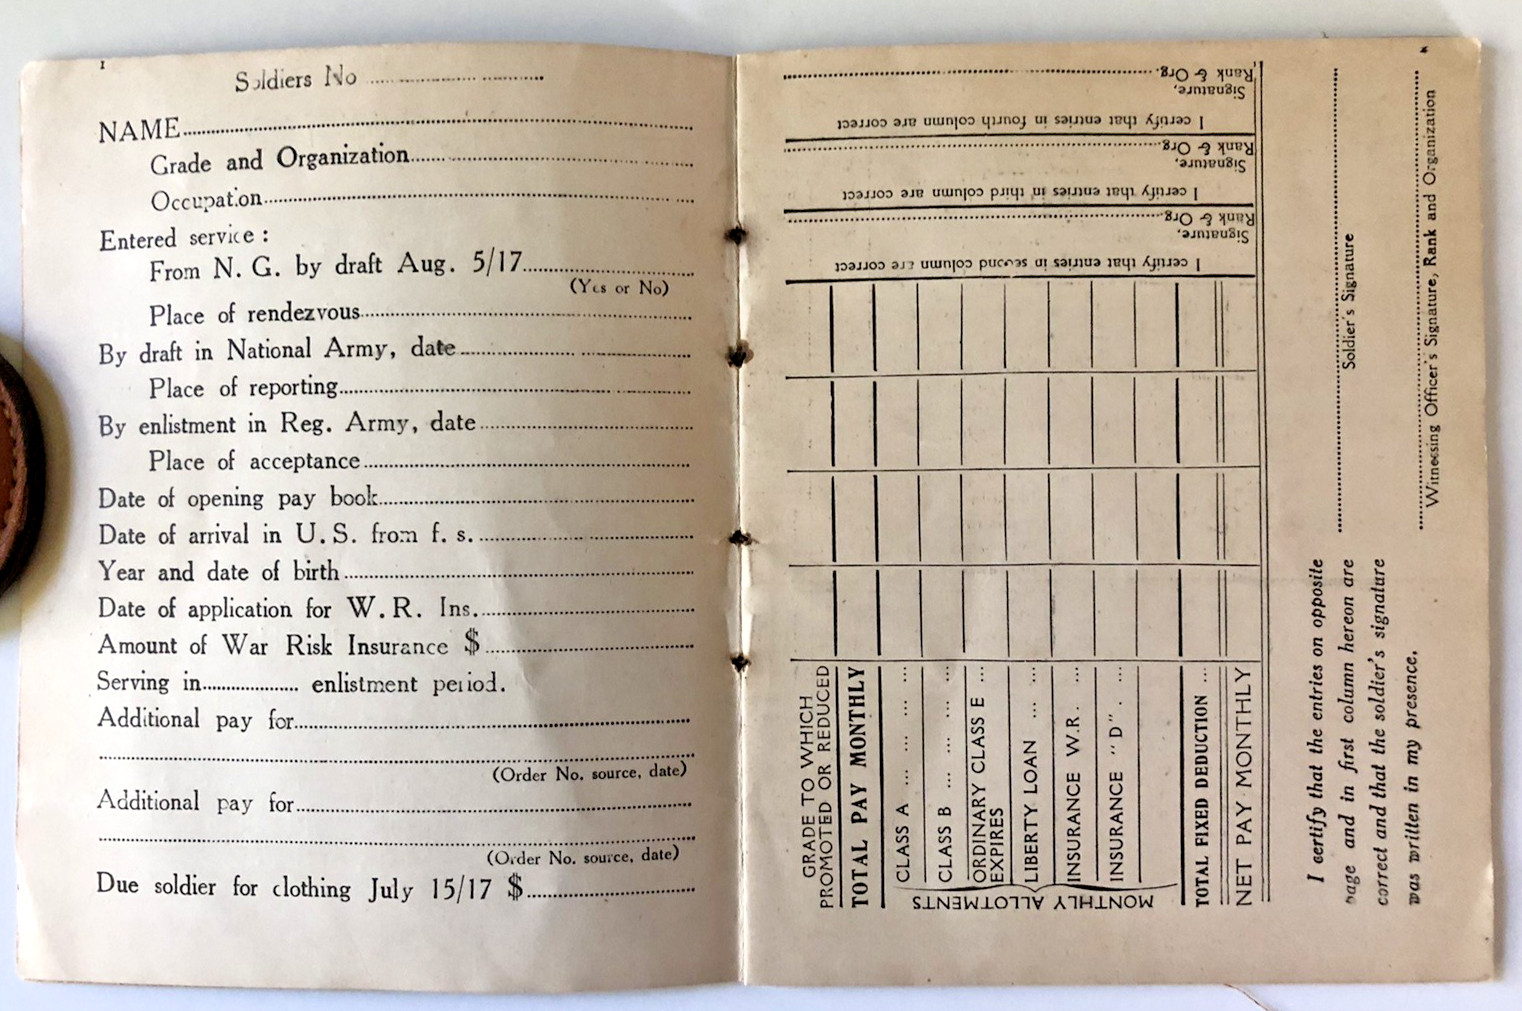 1
Soldiers No ....................
NAME....................
Grade and Organization....................
Occupation....................
Entered service :
From N. G. by draft Aug. 5/17....................
(Yes or No)
Place of rendezvous....................
By draft in National Army, date....................
Place of reporting....................
By enlistment in Reg. Army, date....................
Place of acceptance....................
Date of opening pay book....................
Date of arrival in U. S. from f. s.....................
Year and date of birth....................
Date of application for W. R. Ins.....................
Amount of War Risk Insurance $....................
Serving in.................... enlistment period.
Additional pay for....................
....................
(Order No. source, date)
Additional pay for....................
....................
(Order No. source, date)
Due soldier for clothing July 15/17 $....................
GRADE TO WHICH
PROMOTED OR REDUCED
TOTAL PAY MONTHLY
MONTHLY ALLOTMENTS
CLASS A ... ... ... ...
CLASS B ... ... ... ...
ORDINARY CLASS E ...
EXPIRES
LIBERTY LOAN ... ...
INSURANCE W.R. ...
INSURANCE "D" . ...
TOTAL FIXED DEDUCTION ...
NET PAY MONTHLY
I certify that entries in second column are correct
Signature,
Rank & Org.....................
I certify that entries in third column are correct
Signature,
Rank & Org.....................
I certify that entries in fourth column are correct
Signature,
Rank & Org.....................
I certify that the entries on opposite
page and in first column hereon are
correct and that the soldier's signature
was written in my presence.
....................
Soldier's Signature
....................
Witnessing Officer's Signature, Rank and Organization